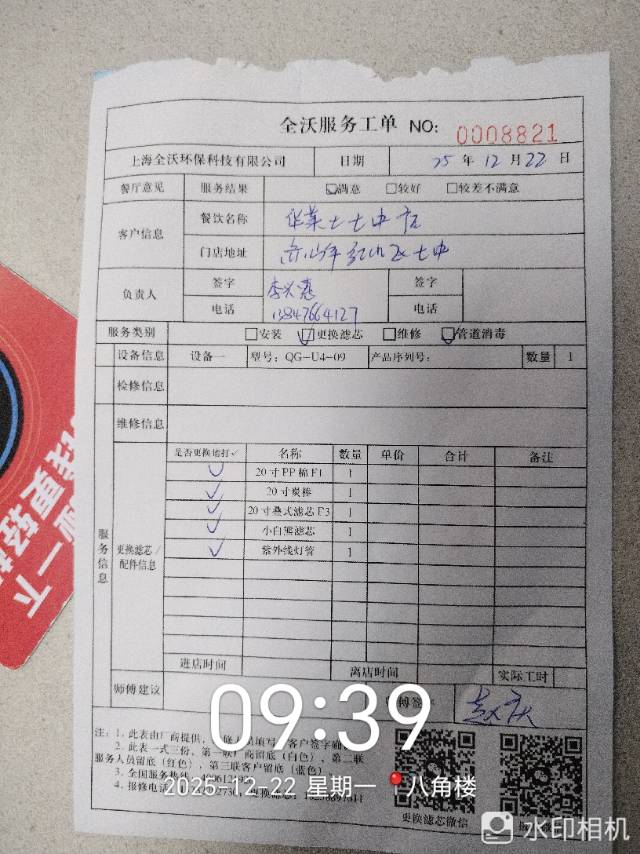 全沃服务工单 NO: 0008821
上海全沃环保科技有限公司 日期 25 年 12 月 22 日
餐厅意见 服务结果 ☑满意 □较好 □较差不满意
客户信息 餐饮名称 华莱士七中店
门店地址
负责人 签字 签字
电话 13847664127 电话
服务类别 □安装 ☑更换滤芯 □维修 ☑管道消毒
设备信息 设备一 型号: QG-U4-09 产品序列号: 数量 1
检修信息
维修信息
是否更换请打✓ 名称 数量 单价 合计 备注
✓ 20寸PP棉F1 1
✓ 20寸炭棒 1
✓ 20寸叠式滤芯F3 1
✓ 小白熊滤芯 1
✓ 紫外线灯管 1
服务信息
更换滤芯/
配件信息
进店时间 离店时间 实际工时
师傅建议
09:39
注: 1、此表由厂商提供,
2、此表一式三份、第一联厂商留底(白色)、第二联
服务人员留底(红色)、第三联客户留底(蓝色)
3、全国服务热线
4、报修电话
2025-12-22 星期一 八角楼
更换滤芯微信
水印相机
一下